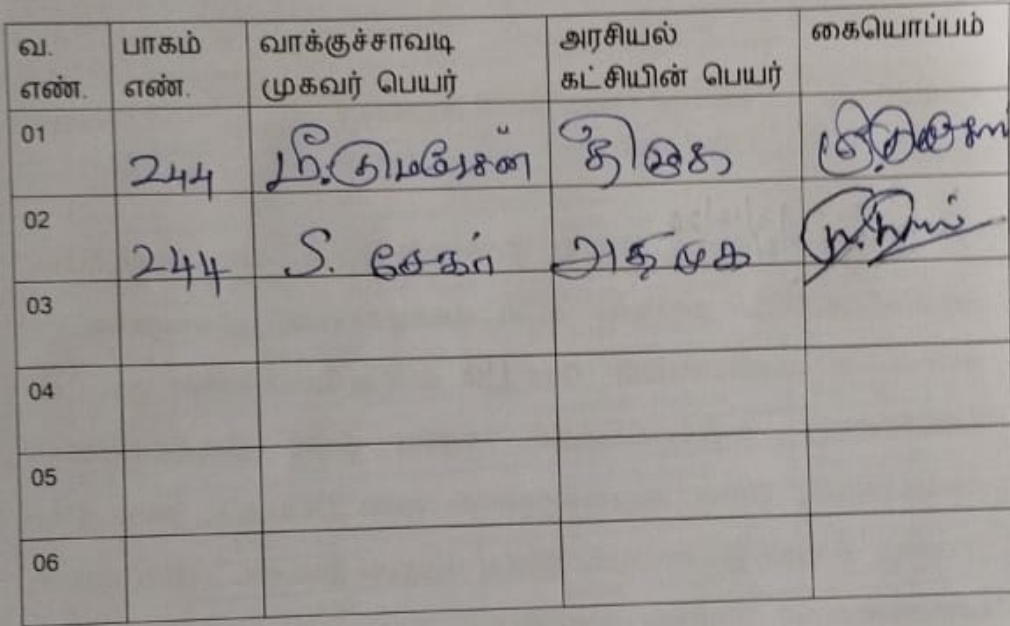 வ. எண். பாகம் எண். வாக்குச்சாவடி முகவர் பெயர் அரசியல் கட்சியின் பெயர் கையொப்பம்
01 244
02 244 S. சேகர் அதிமுக
03
04
05
06